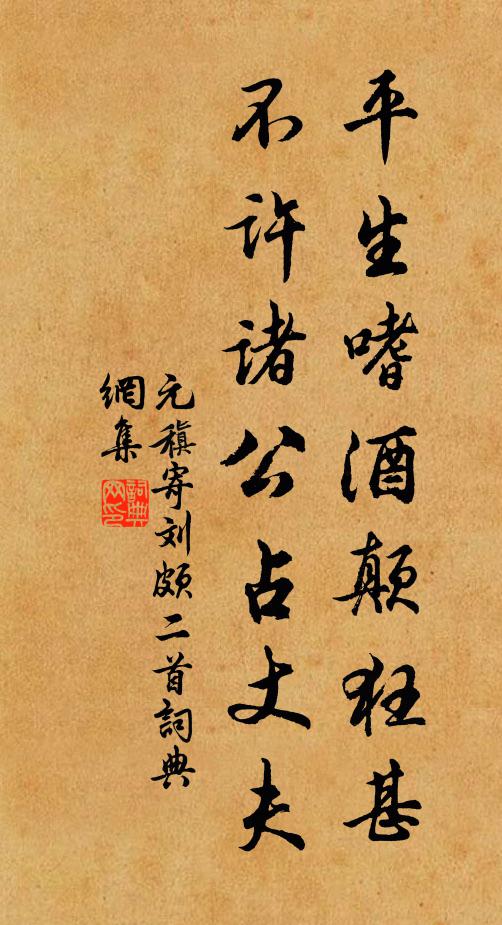 平生嗜酒颠狂甚
不许诸公占丈夫
元稹寄刘颇二首詞典
網集
詞典網印